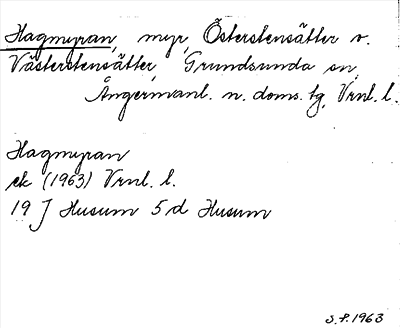 Hagmyran, myr, Österstensätter o.
Västerstensätter, Grundsunda sn,
Ångermanl. n. doms. tg, Vrnl. l.
Hagmyran
ek (1963) Vrnl. l.
19 J Husum 5 d Husum
S.F. 1963